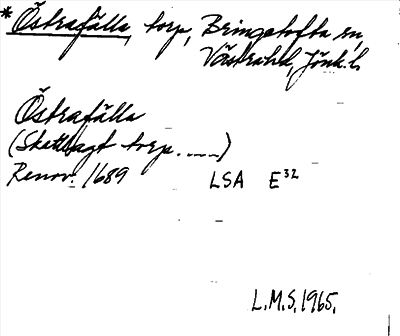 *Östrafälla, torp, Bringetofta sn,
Västra hd, Jönk.l.
Östrafälla
(Skattlagt torp. ----)
Renov. 1689 LSA E32
L.M.S. 1965.